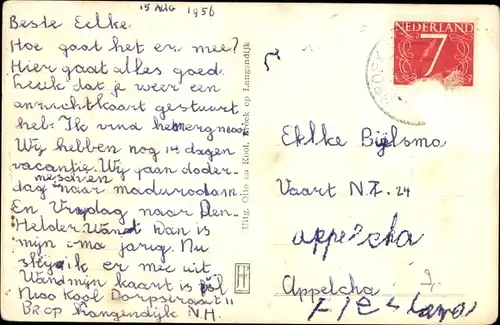 15 AUG 1956
Beste Eelke.
Hoe gaat het er mee?
Hier gaat alles goed.
Leuk dat je weer een
anzichtkaart gestuurt
heb. Ik vind het erg mooi
Wij hebben nog 14 dagen
vacantie. Wij gaan donder-
misschien
dag naar madurodam
En Vrijdag naar Den-
Helder. Want dan is
mijn oma jarig. Nu
ik er mee uit
Want mijn kaart is vol
Nico Kool Dorpstraat 11
Br op Langendijk N.H.
Uitg. Otto en Kool, Broek op Langendijk
NEDERLAND
7
Eelke Bijlsma
Vaart N.Z. 24
appelscha
Appelcha